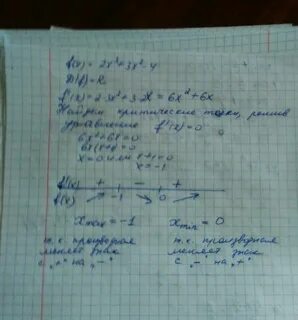 f(x) = 2x³+3x²-4
D(f)=R
f'(x)=2·3x²+3·2x=6x²+6x
Найдем критические точки, решив
уравнение f'(x)=0
6x²+6x=0
6x(x+1)=0
x=0 или x+1=0
x=-1
f'(x) + - +
f(x) -1 0
xmax=-1 xmin=0
т.к. производная т.к. производная
меняет знак меняет знак
с „+" на „-" с „-" на „+"